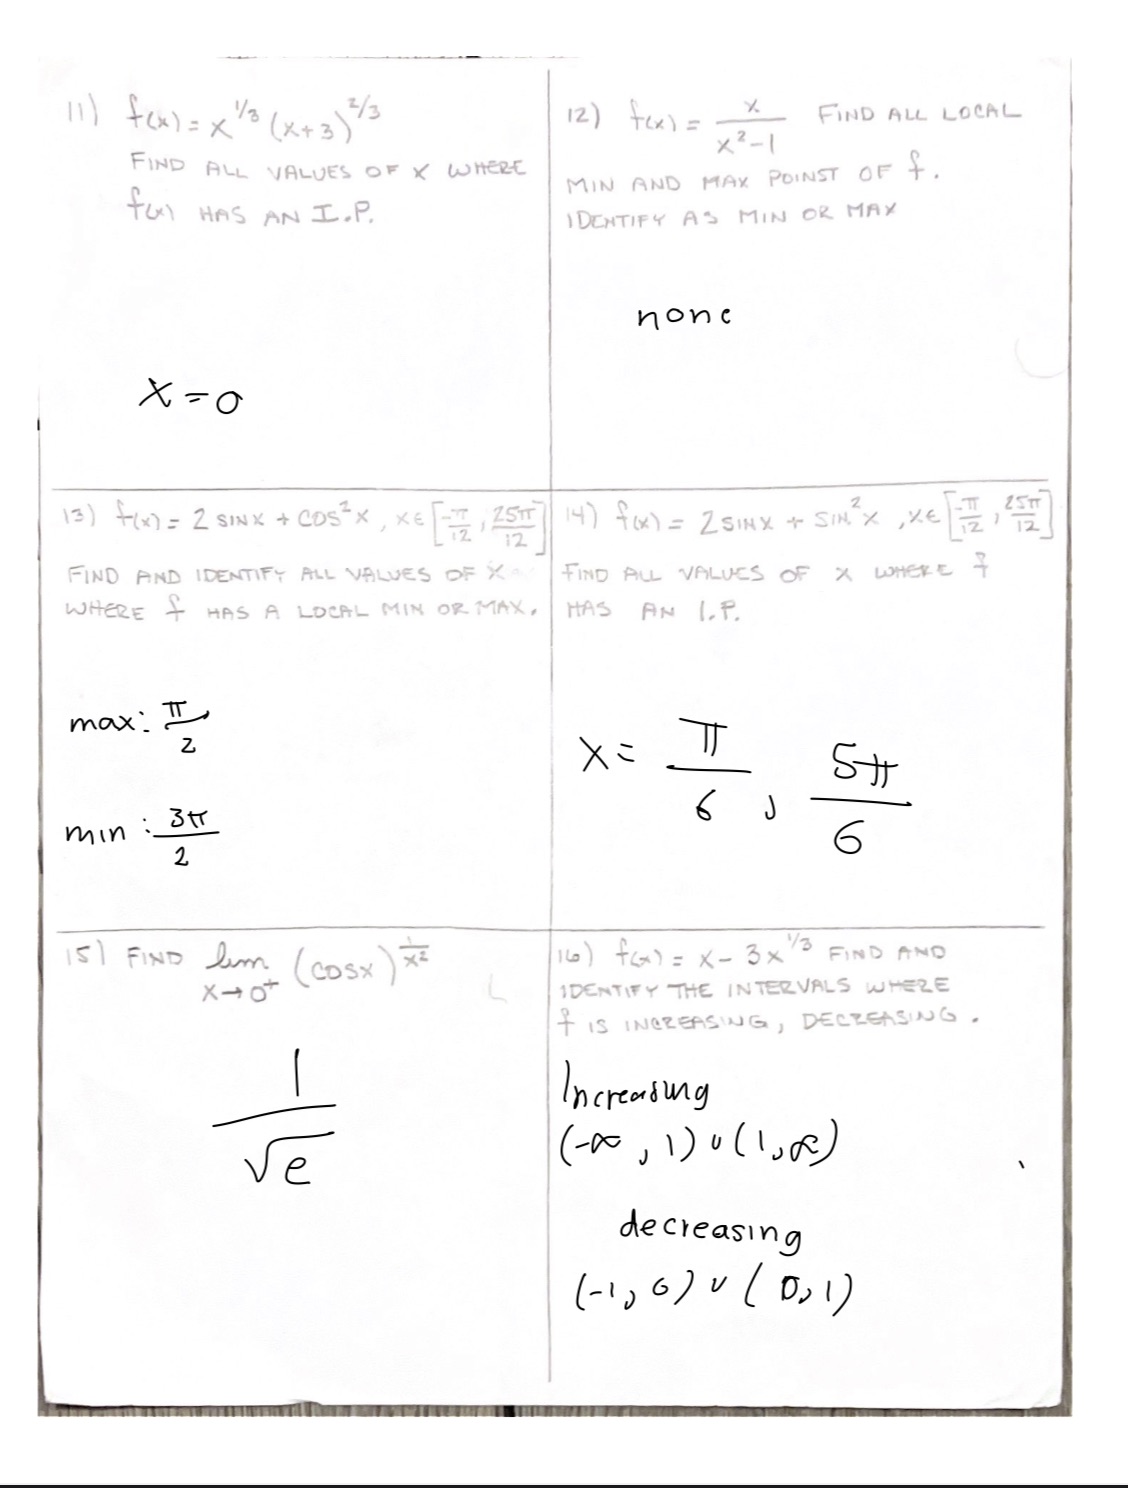 11) f(x) = x^{1/3} (x+3)^{2/3}
FIND ALL VALUES OF X WHERE
f(x) HAS AN I.P.
x = 0
12) f(x) = \frac{x}{x^2-1} FIND ALL LOCAL
MIN AND MAX POINST OF f.
IDENTIFY AS MIN OR MAX
none
13) f(x) = 2 SINX + COS^2 X, X ∈ [\frac{-π}{12}, \frac{25π}{12}]
FIND AND IDENTIFY ALL VALUES OF X
WHERE f HAS A LOCAL MIN OR MAX.
max: \frac{π}{2}
min: \frac{3π}{2}
14) f(x) = 2 SINX + SIN^2 X, X ∈ [\frac{-π}{12}, \frac{25π}{12}]
FIND ALL VALUES OF X WHERE f
HAS AN I.P.
x = \frac{π}{6}, \frac{5π}{6}
15) FIND lim_{x→0^+} (cosx)^{\frac{1}{x^2}}
\frac{1}{√e}
16) f(x) = x - 3x^{1/3} FIND AND
IDENTIFY THE INTERVALS WHERE
f IS INCREASING, DECREASING.
Increasing
(-∞, 1) ∪ (1, ∞)
decreasing
(-1, 0) ∪ (0, 1)